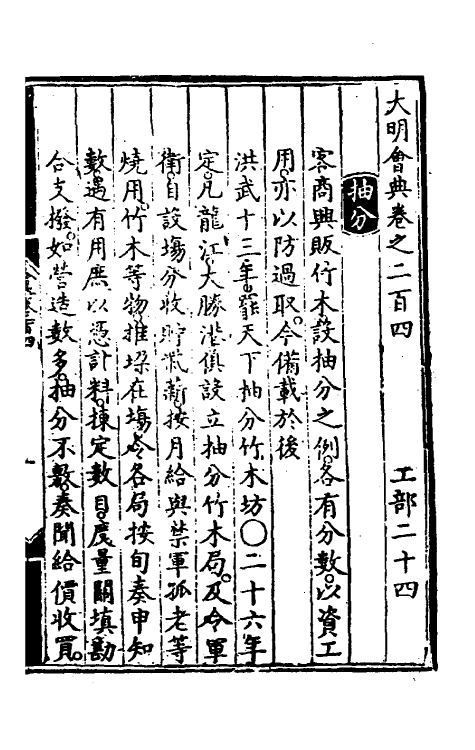 大明會典卷之二百四 工部二十四
抽分
客商興販竹木設抽分之例。各有分數。以資工
用。亦以防過取。今備載於後
洪武十三年。罷天下抽分竹木坊〇二十六年
定。凡龍江大勝港俱設立抽分竹木局。及令軍
衛自設場分收貯柴薪。按月給與禁軍孤老等
燒用。竹木等物。堆垛在場。令各局按旬奏申知
數。遇有用度。以憑計料。揀定數目。度量關填勘
合支撥。如營造數多。抽分不敷。奏聞給價收買。